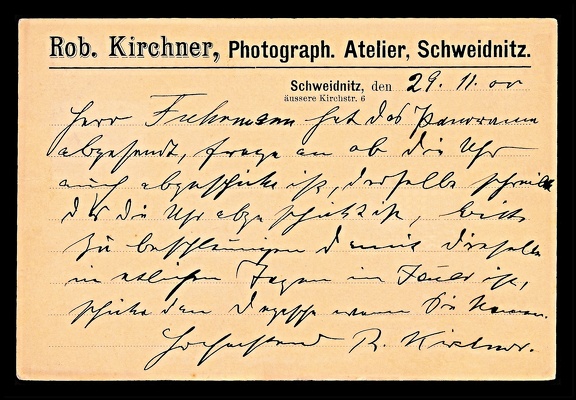 Rob. Kirchner, Photograph. Atelier, Schweidnitz.
Schweidnitz, den 29. 11. 00
äussere Kirchstr. 6
Herr Fuhrmann hat das Panorama
abgesandt, frage an ob die Uhr
auch abgeschickt ist, derselbe schreibt
daß die Uhr abgeschickt ist, bitte
zu beschleunigen damit dieselbe
in etlichen Tagen in ist,
schicke den wenn Sie kommen.
Hochachtend R. Kirchner.